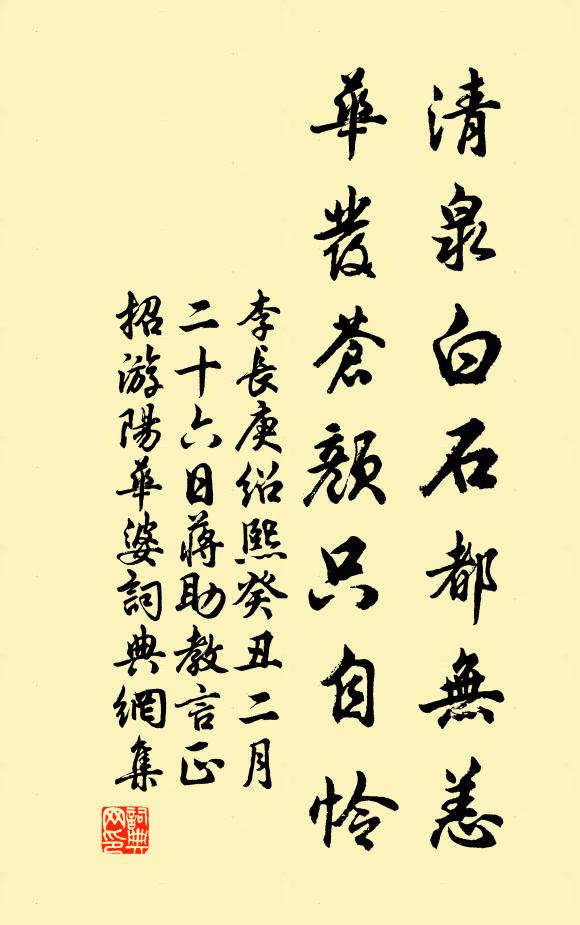 清泉白石都無恙
華發蒼顏只自怜
李長庚紹熙癸丑二月
二十六日蔣助教言正
招游陽華婆詞典網集
詞典
网印